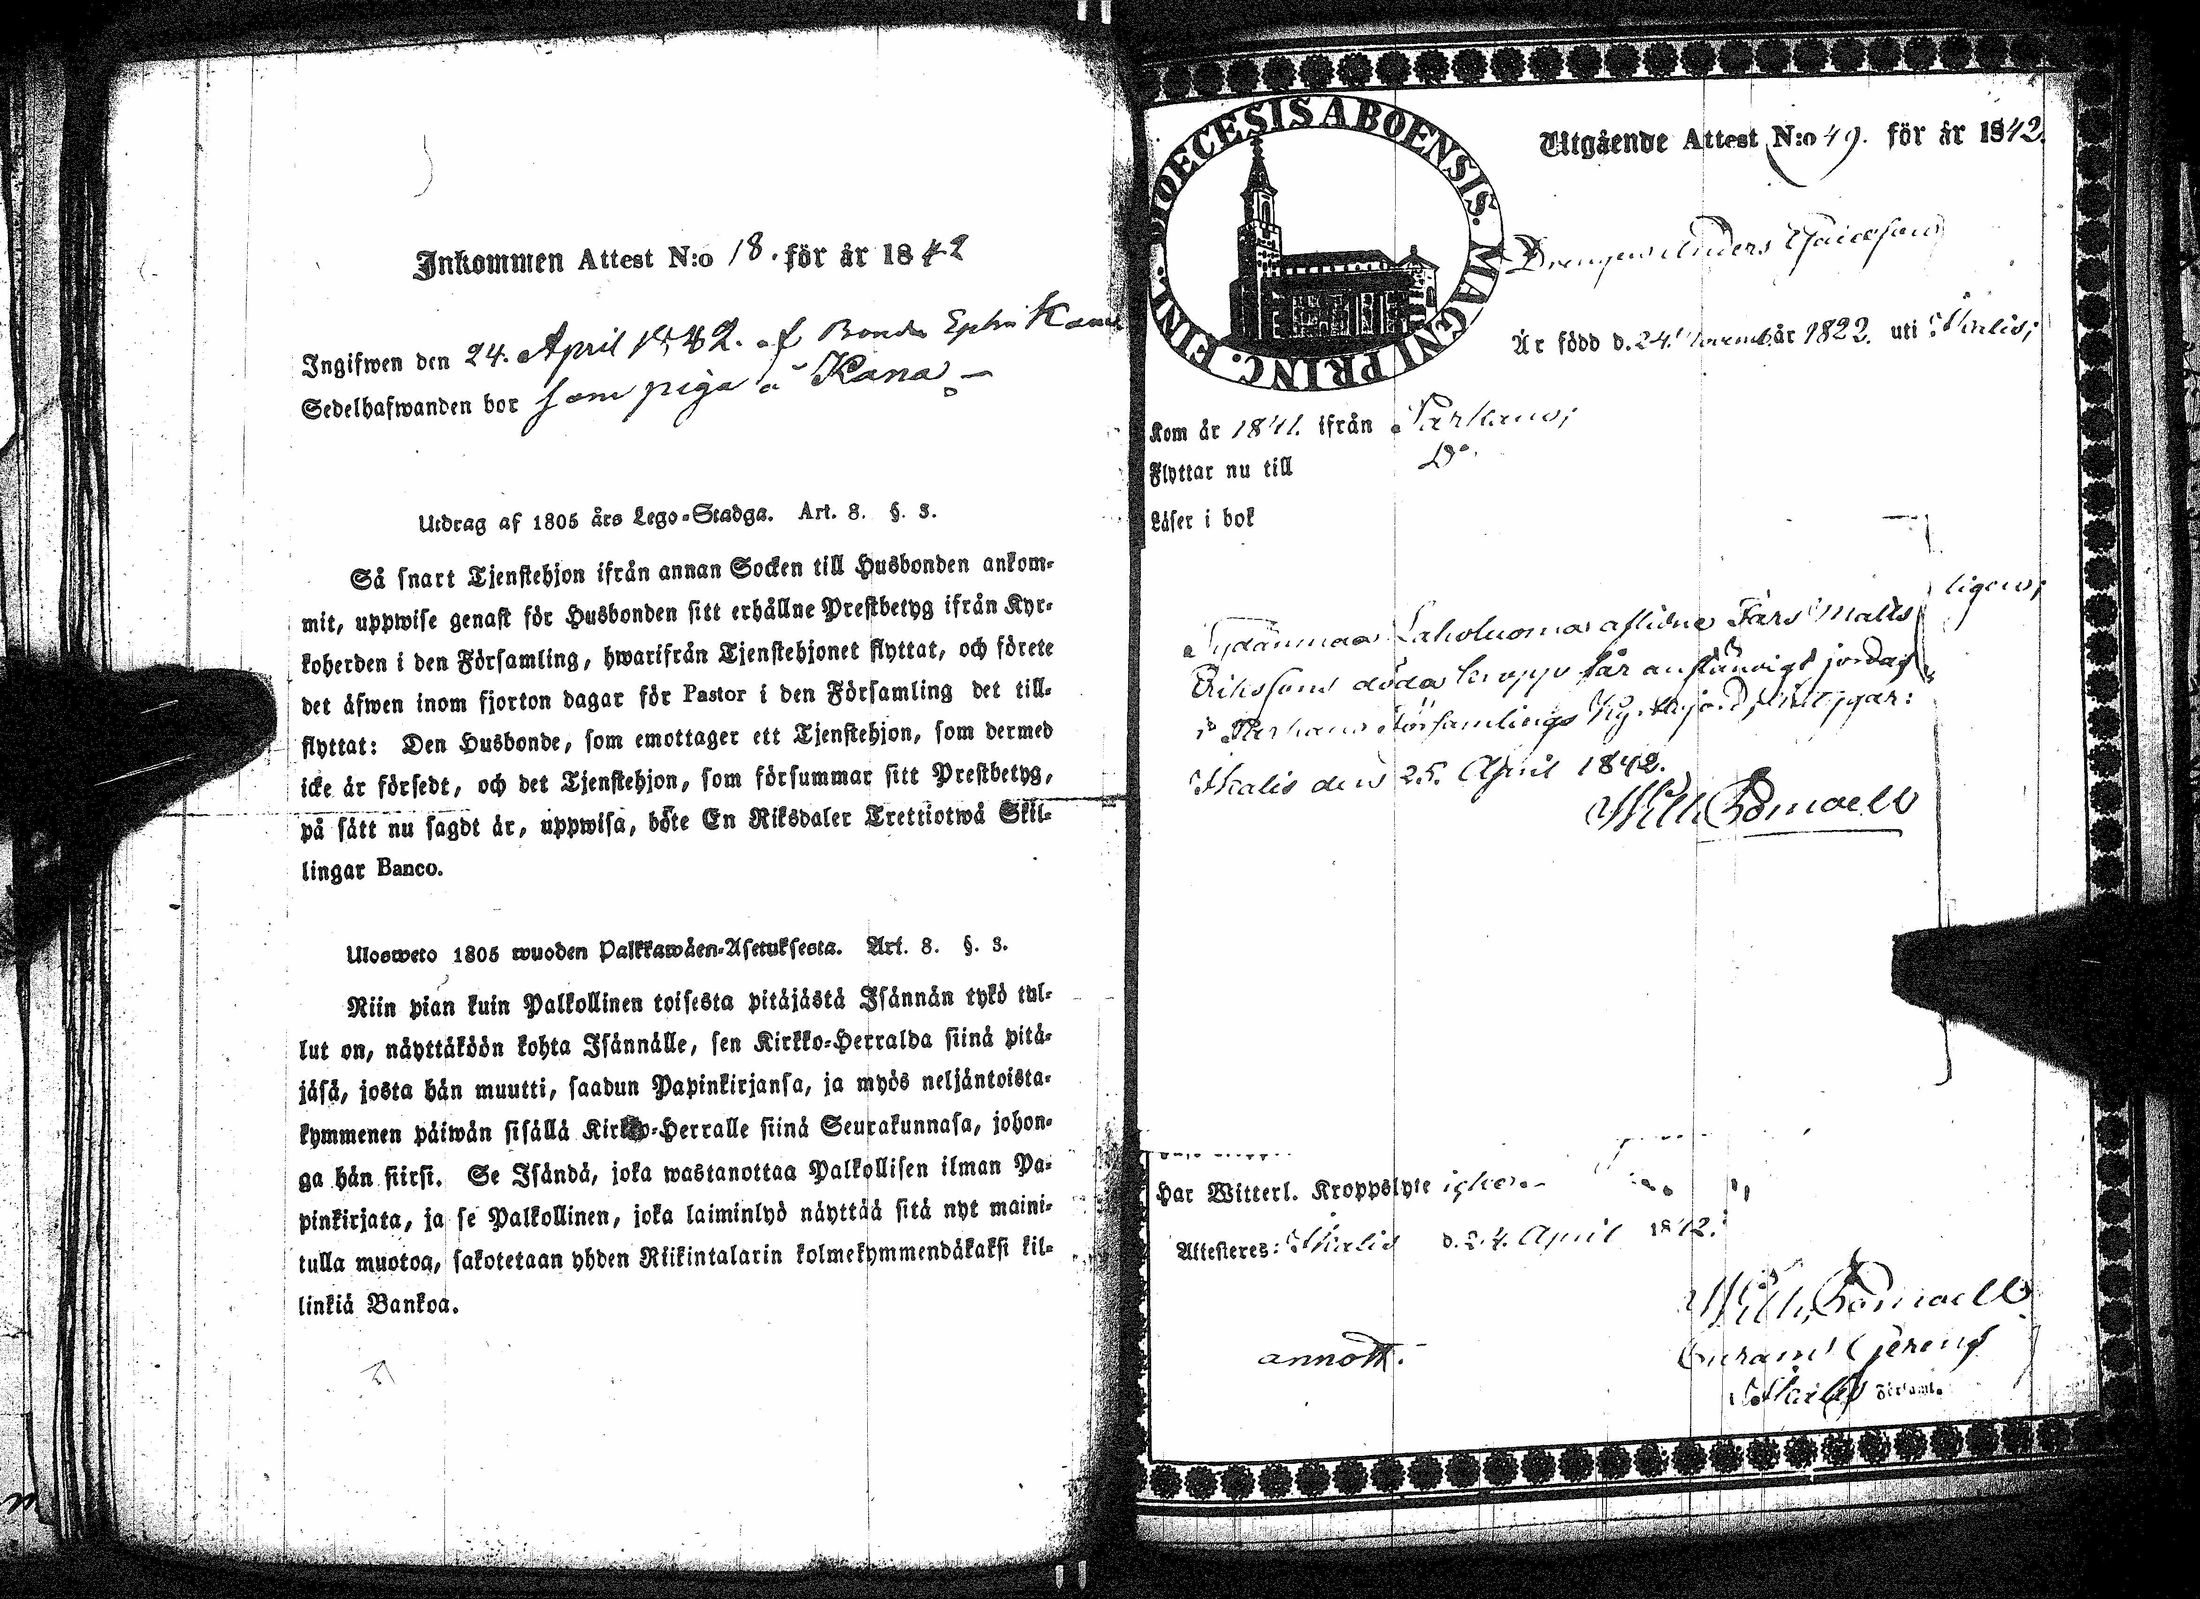 Inkommen Attest N:o 18. för år 1842
Ingifwen den 24. April 1842. af Bonde Ephr Kana
Sedelhafwanden bor som piga å Kana
Utdrag af 1805 års Lego-Stadga. Art. 8. §. 3.
Så snart Tjenstehjon ifrån annan Socken till Husbonden ankom-
mit, uppwise genast för Husbonden sitt erhållne Prestbetyg ifrån Kyr-
koherden i den Församling, hwarifrån Tjenstehjonet flyttat, och förete
det äfwen inom fjorton dagar för Pastor i den Församling det till-
flyttat: Den Husbonde, som emottager ett Tjenstehjon, som dermed
icke är försedt, och det Tjenstehjon, som försummar sitt Prestbetyg,
på sätt nu sagdt är, uppwisa, böte En Riksdaler Trettiotwå Skil-
lingar Banco.
Ulosweto 1805 wuoden Palkkawäen-Asetuksesta. Art. 8. §. 3.
Niin pian kuin Palkollinen toisesta pitäjästä Isännän tykö tul-
lut on, näyttäköön kohta Isännälle, sen Kirkko-Herralda siinä pitä-
jäsä, josta hän muutti, saadun Papinkirjansa, ja myös neljäntoista-
kymmenen päiwän sisällä Kirkko-Herralle siinä Seurakunnasa, johon-
ga hän siirsi. Se Isändä, joka wastanottaa Palkollisen ilman Pa-
pinkirjata, ja se Palkollinen, joka laiminlyö näyttää sitä nyt maini-
tulla muotoa, sakotetaan yhden Riikintalarin kolmekymmendäkaksi kil-
linkiä Bankoa.
DIOECESIS ABOENSIS. MAGNI PRINC. FINL.
Utgående Attest N:o 49. för år 1842.
Drengen Anders
Är född d. 24. Novemb år 1822. uti Ikalis;
Kom år 1841. ifrån Parkano;
Flyttar nu till Do.
Läser i bok
ligen;
aflidne Fars Matts
Erikssons döda kropp får anständigt jordas
i Parkano Församlings Kyrkojord,
Ikalis den 25. April 1842.
Wilh.
Har Witterl. Kroppslyte
Attesteres: Ikalis d. 24. April 1842.
Wilh.
annott.
Ikalis Församl.